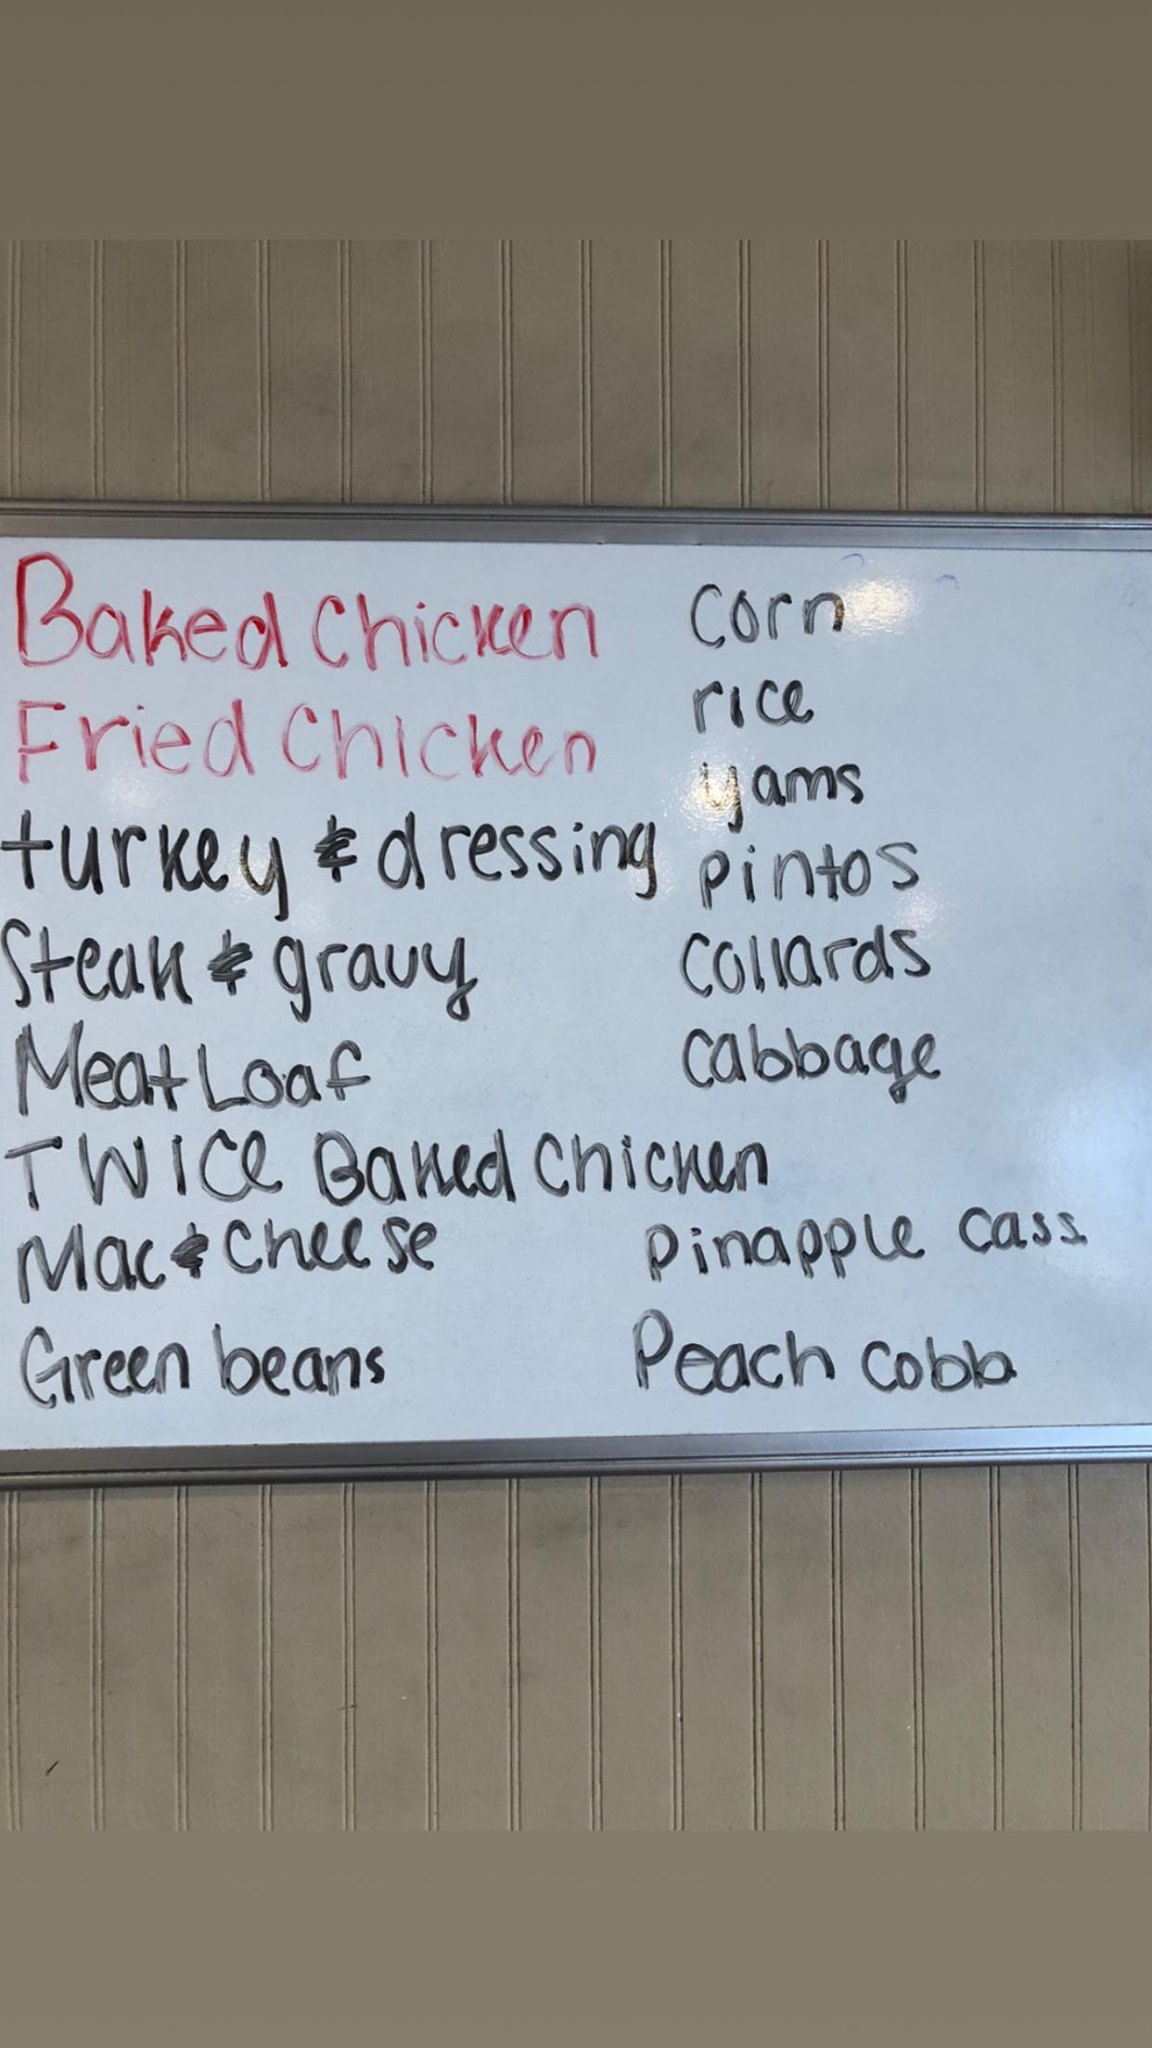 Baked Chicken
Fried Chicken
turkey & dressing
Steak & gravy
Meat Loaf
TWICE Baked Chicken
Mac & Cheese
Green beans
Corn
rice
yams
pintos
Collards
Cabbage
pinapple Cass
Peach Cobb